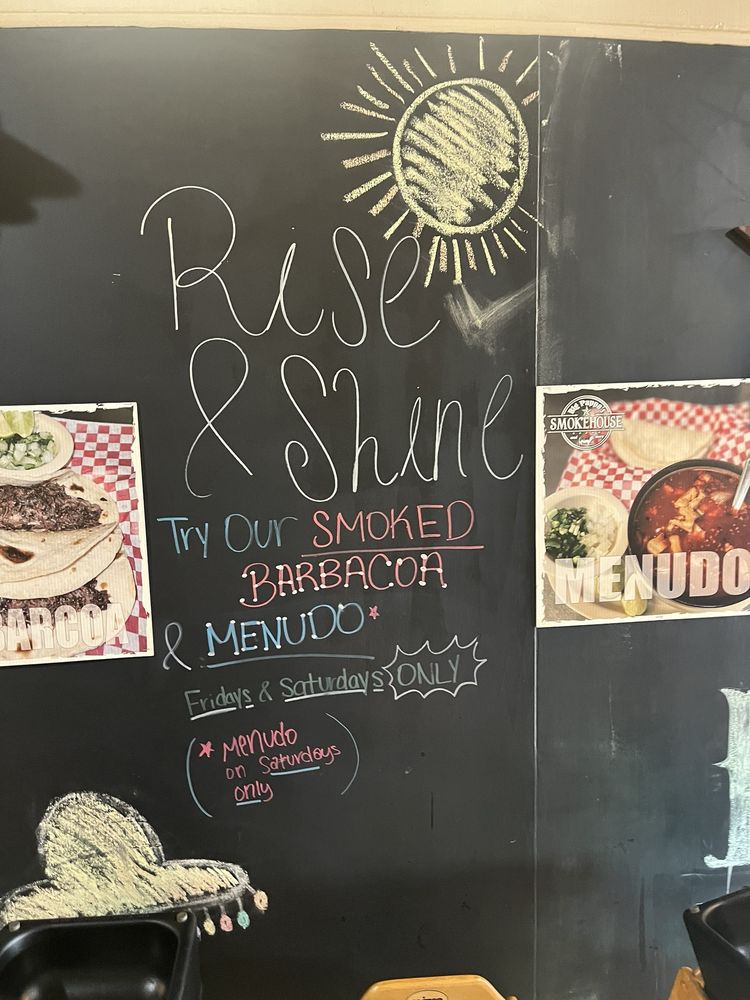 Rise
& Shine
Try Our SMOKED
BARBACOA
& MENUDO*
Fridays & Saturdays ONLY
(* Menudo
on Saturdays
only)
BARCOA
Big Poppa's
SMOKEHOUSE
MENUDO